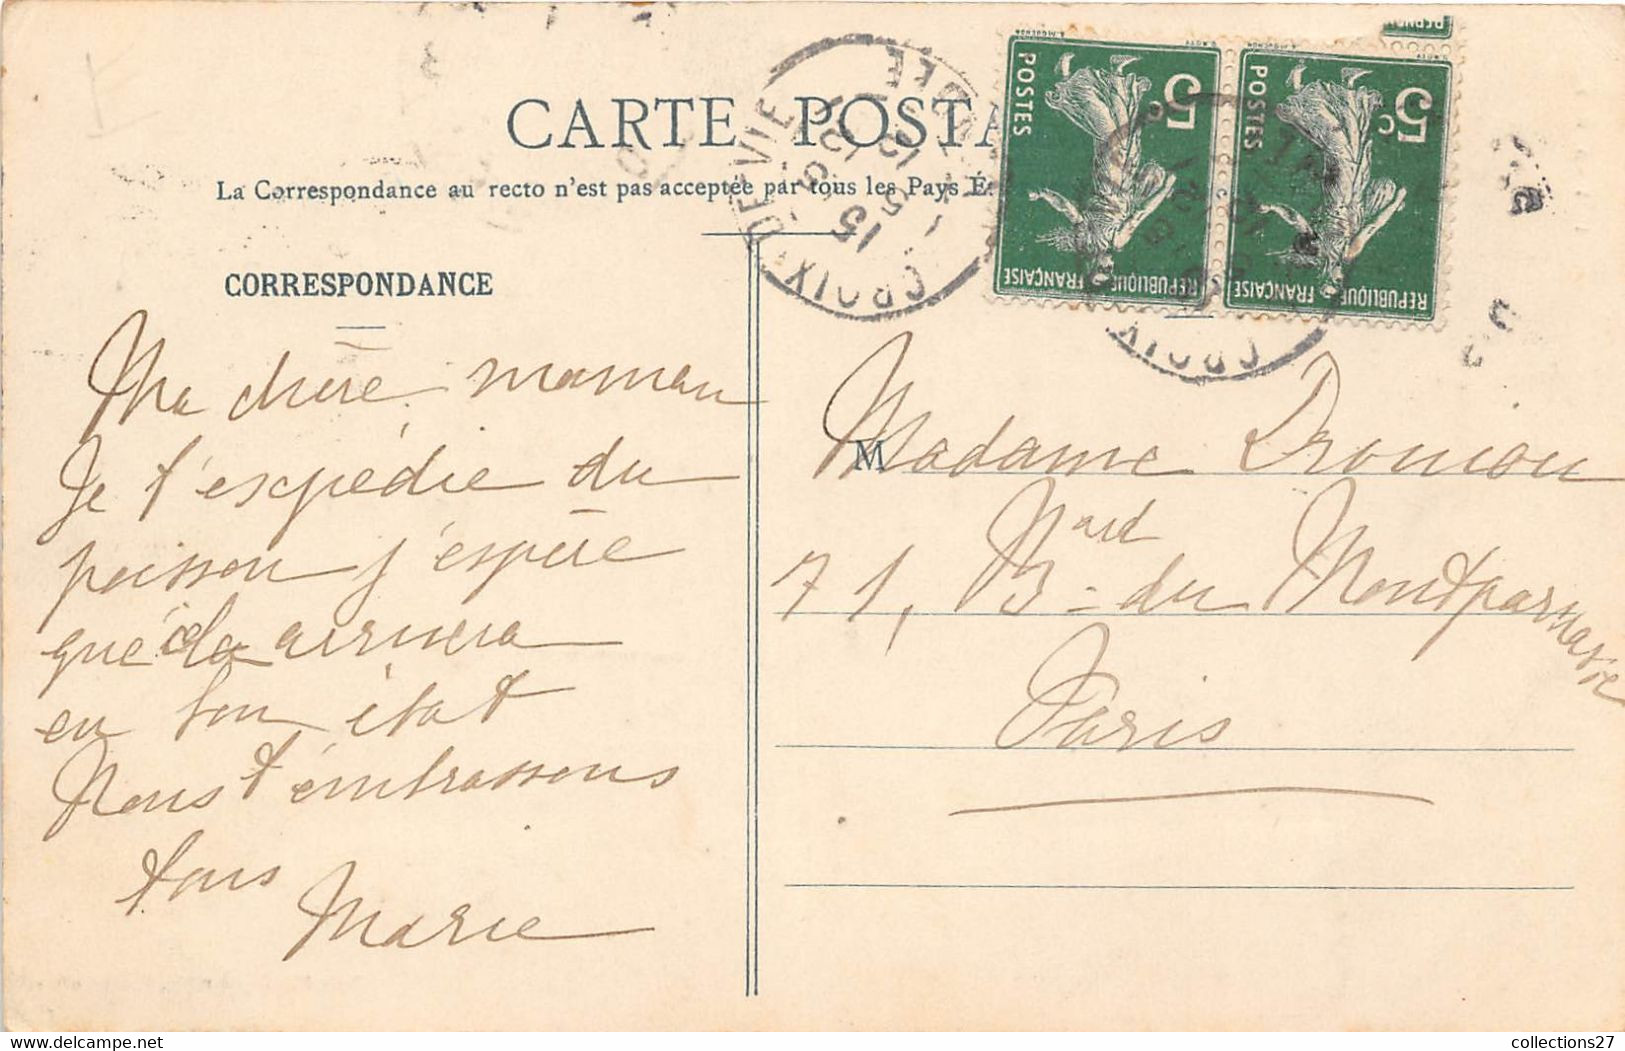 CARTE POSTA
La Correspondance au recto n'est pas acceptée par tous les Pays É
CORRESPONDANCE
Ma chère maman
Je t'expédie du
poisson j'espère
que cela arrivera
en bon état
Nous t'embrassons
tous
Marie
5c
POSTES
REPUBLIQUE FRANÇAISE
5c
POSTES
REPUBLIQUE FRANÇAISE
CROIX DE VIE
CROIX
M Madame Drouion
71, Bard du Montparnasse
Paris
collections27